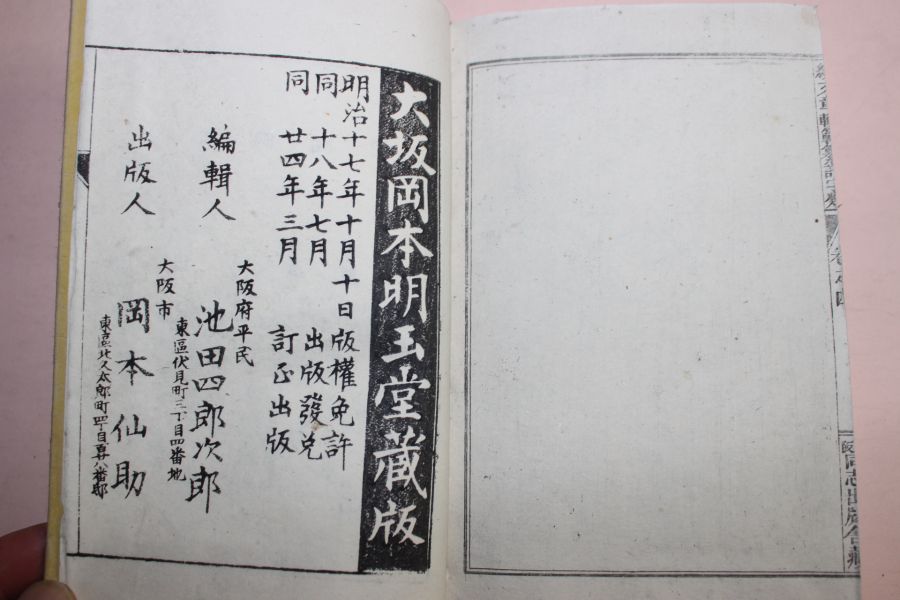 大坂岡本明玉堂藏版
明治十七年十月十日版權免許
同十八年七月出版發兌
同廿四年三月訂正出版
編輯人
大阪府平民
池田四郎次郎
東區伏見町三丁目四番地
出版人
大阪市
岡本仙助
東區北久太郎町四丁目
同志出版舎藏